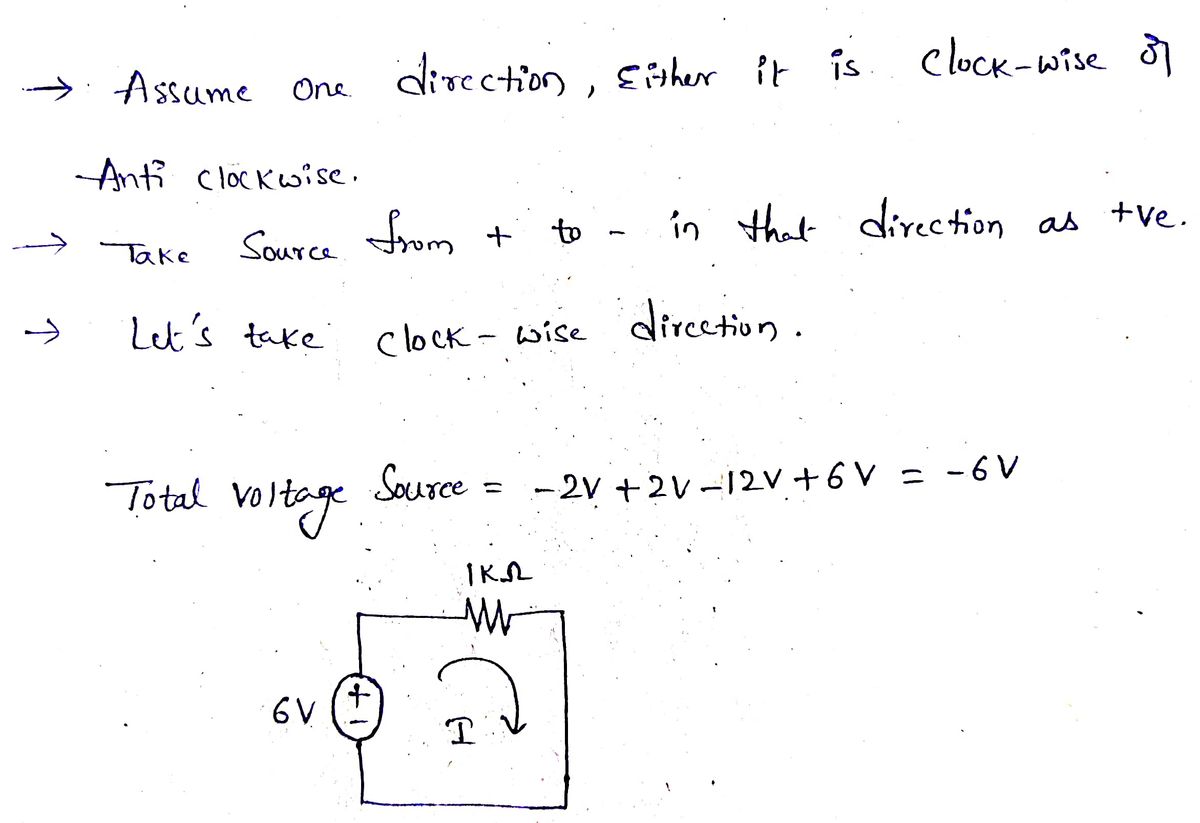 → Assume one direction, Either it is clock-wise or
Anti clockwise.
→ Take Source from + to - in that direction as +ve.
→ Let's take clock-wise direction.
Total voltage Source = -2V +2V -12V +6V = -6V
1KΩ
6V
+
-
I